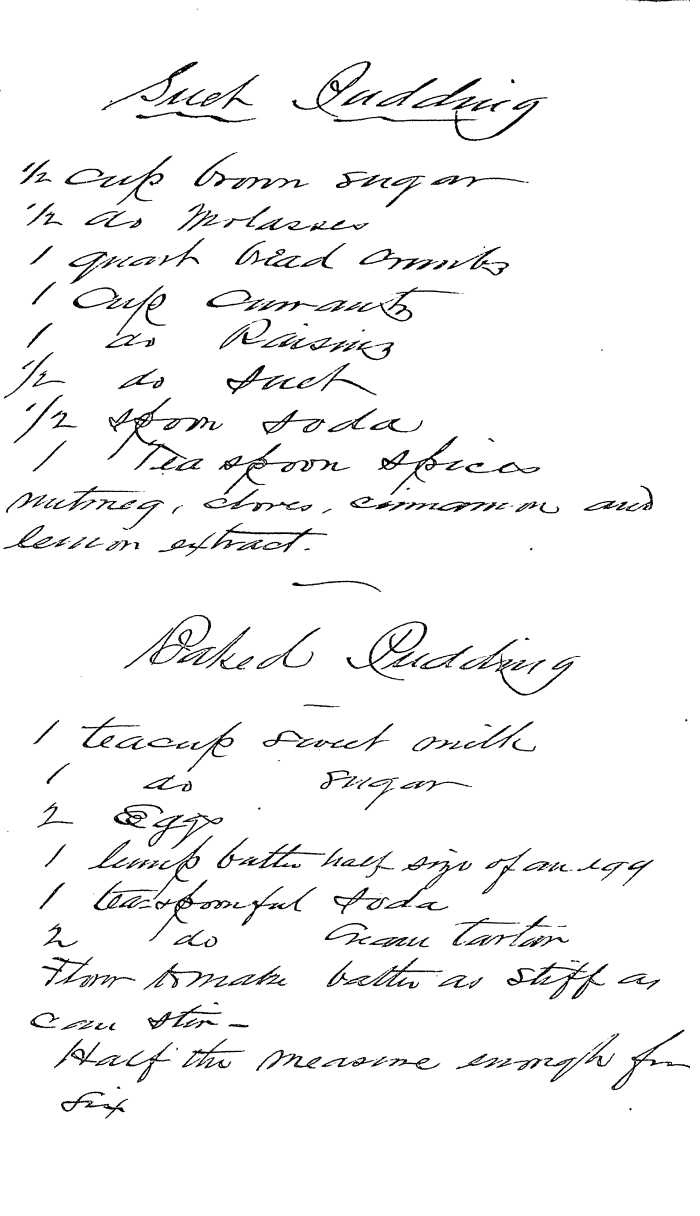 Suet Pudding
1/2 cup brown sugar
1/2 do Molasses
1 quart bread crumbs
1 Cup currants
1 do Raisins
1/2 do suet
1/2 spoon soda
1 Teaspoon spices
nutmeg, cloves, cinnamon and
lemon extract.
Baked Pudding
1 teacup sweet milk
1 do sugar
2 Eggs
1 lump butter half size of an egg
1 tea-spoonful soda
2 do Cream tartar
Flour to make batter as stiff as
can stir -
Half the measure enough for
six